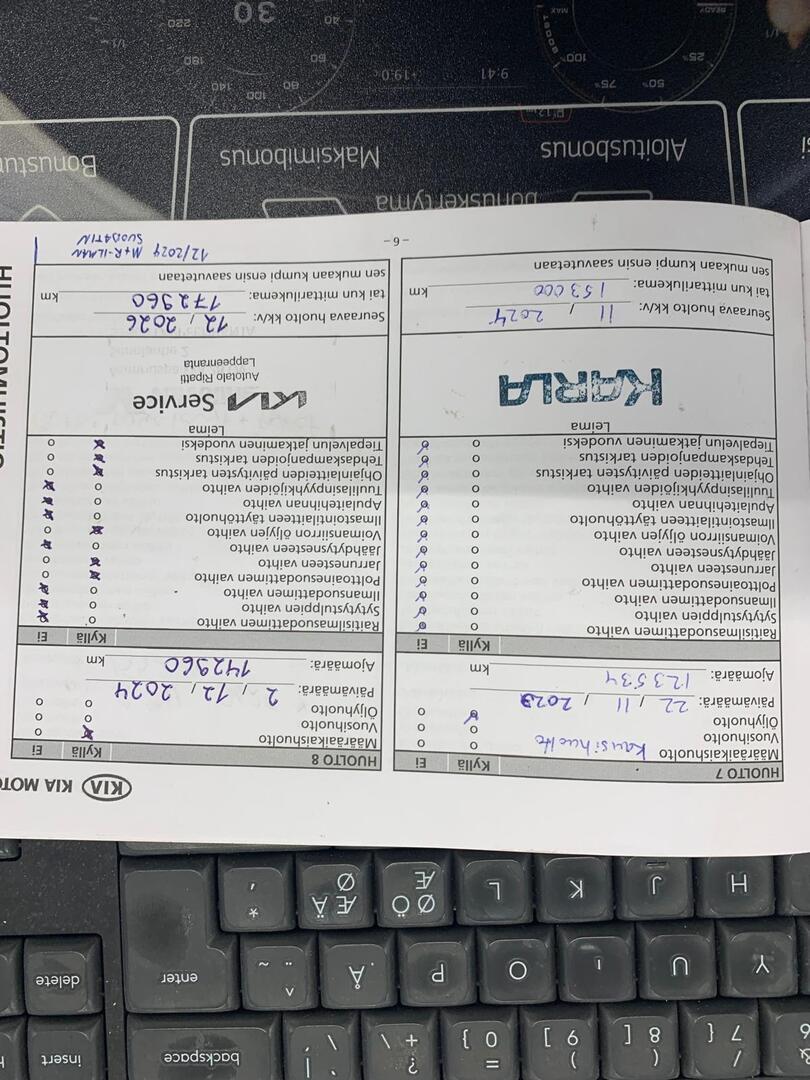 6 &
7 / {
8 ( [
9 ) ]
0 = }
+ ? \
backspace
insert
Y U I O P Å ^ ¨ ~
enter
delete
H J K L Ø Ö Æ Æ Ä Ø * '
KIA KIA MOTO
HUOLTO 7 Kyllä Ei
Määräaikaishuolto Kausihuolto o o
Vuosihuolto o o
Öljyhuolto o o
Päivämäärä: 22 / 11 / 2023
Ajomäärä: 123534 km
Kyllä Ei
Raitisilmasuodattimen vaihto o o
Sytytystulppien vaihto o o
Ilmansuodattimen vaihto o o
Polttoainesuodattimen vaihto o o
Jarrunesteen vaihto o o
Jäähdytysnesteen vaihto o o
Voimansiirron öljyjen vaihto o o
Ilmastointilaitteen täyttöhuolto o o
Apulaitehihnan vaihto o o
Tuulilasinpyyhkijöiden vaihto o o
Ohjainlaitteiden päivitysten tarkistus o o
Tehdaskampanjoiden tarkistus o o
Tiepalvelun jatkaminen vuodeksi o o
Leima
KARLA
Seuraava huolto kk/v: 11 / 2024
tai kun mittarilukema: 153000 km
sen mukaan kumpi ensin saavutetaan
HUOLTO 8 Kyllä Ei
Määräaikaishuolto x o
Vuosihuolto o o
Öljyhuolto o o
Päivämäärä: 2 / 12 / 2024
Ajomäärä: 142960 km
Kyllä Ei
Raitisilmasuodattimen vaihto o x
Sytytystulppien vaihto o x
Ilmansuodattimen vaihto o x
Polttoainesuodattimen vaihto x o
Jarrunesteen vaihto x o
Jäähdytysnesteen vaihto o x
Voimansiirron öljyjen vaihto x o
Ilmastointilaitteen täyttöhuolto o x
Apulaitehihnan vaihto o x
Tuulilasinpyyhkijöiden vaihto o x
Ohjainlaitteiden päivitysten tarkistus x o
Tehdaskampanjoiden tarkistus x o
Tiepalvelun jatkaminen vuodeksi x o
Leima
KIA Service
Autotalo Ripatti
Lappeenranta
Seuraava huolto kk/v: 12 / 2026
tai kun mittarilukema: 172960 km
sen mukaan kumpi ensin saavutetaan
- 6 -
12/2024 M+R-ILMAN
SUODATIN
HUOLTOMUISTIO
bonuskertymä
Aloitusbonus
Maksimibonus
Bonustu
9:41
+19.0°
25%
50%
75%
100%
BOOST
MAX
READY
30
40
60
80
100
140
180
220